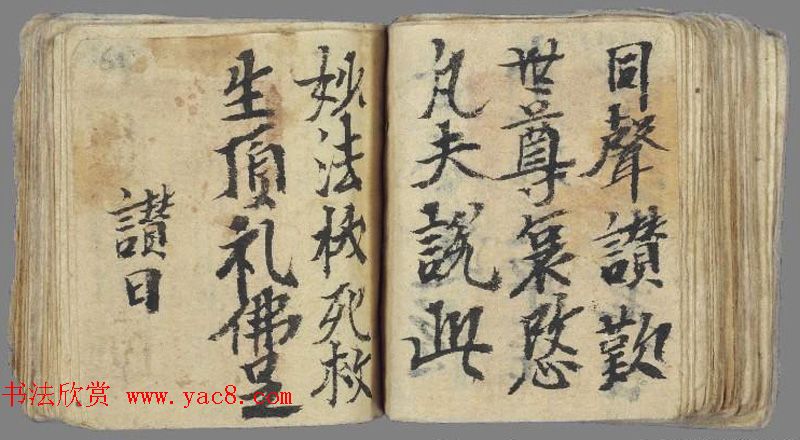 同聲讃歎
世尊哀愍
凡夫說此
妙法拔死救
生頂礼佛足
讃曰
书法欣赏 www.yac8.com